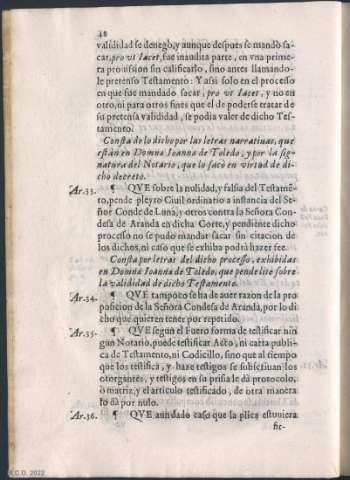 48
valididad se denego, y aunque despues se mando sa-
car, pro vt Iacet, fue inaudita parte, en vna prime-
ra prouision sin calificarlo, sino antes llamando-
le pretenso Testamento: Y assi solo en el processo
en que fue mandado sacar, pro vt Iacet, y no en
otro, ni para otros fines que el de poderse tratar de
su pretensa valididad, se podia valer de dicho Tes-
tamento.
Consta de lo dicho por las letras narratiuas, que
estàn en Domna Ioanna de Toledo, y por la sig-
natura del Notario, que lo sacò en virtud de di-
cho decreto.
Ar. 33. ¶ QVE sobre la nulidad, y falsia del Testamẽ-
to, pende pleyto Ciuil ordinario a instancia del Se-
ñor Conde de Luna, y otros contra la Señora Con-
desa de Aranda en dicha Corte, y pendiente dicho
processo no se pudo mandar sacar sin citacion de
los dichos, ni caso que se exhiba podrà hazer fee.
Consta por letras del dicho processo, exhibidas
en Domna Ioanna de Toledo, que pende lite sobre
la valididad de dicho Testamento.
Ar. 34. ¶ QVE tampoco se ha de auer razon de la pro
posicion de la Señora Condesa de Aranda, por lo di
cho que quieren tener por repetido.
Ar. 35. ¶ QVE segun el Fuero forma de testificar nin
gun Notario, puede testificar Acto, ni carta publi-
ca de Testamento, ni Codicillo, sino que al tiempo
que los testifica, y haze testigos se subscriuan los
otorgantes, y testigos en su prisa le dà protocolo,
ò matriz, y el articulo testificado, de otra manera
lo dà por nulo.
Ar. 36. ¶ QVE aun dado caso que la plica estuuiera
fir-
A.C.D. 2022